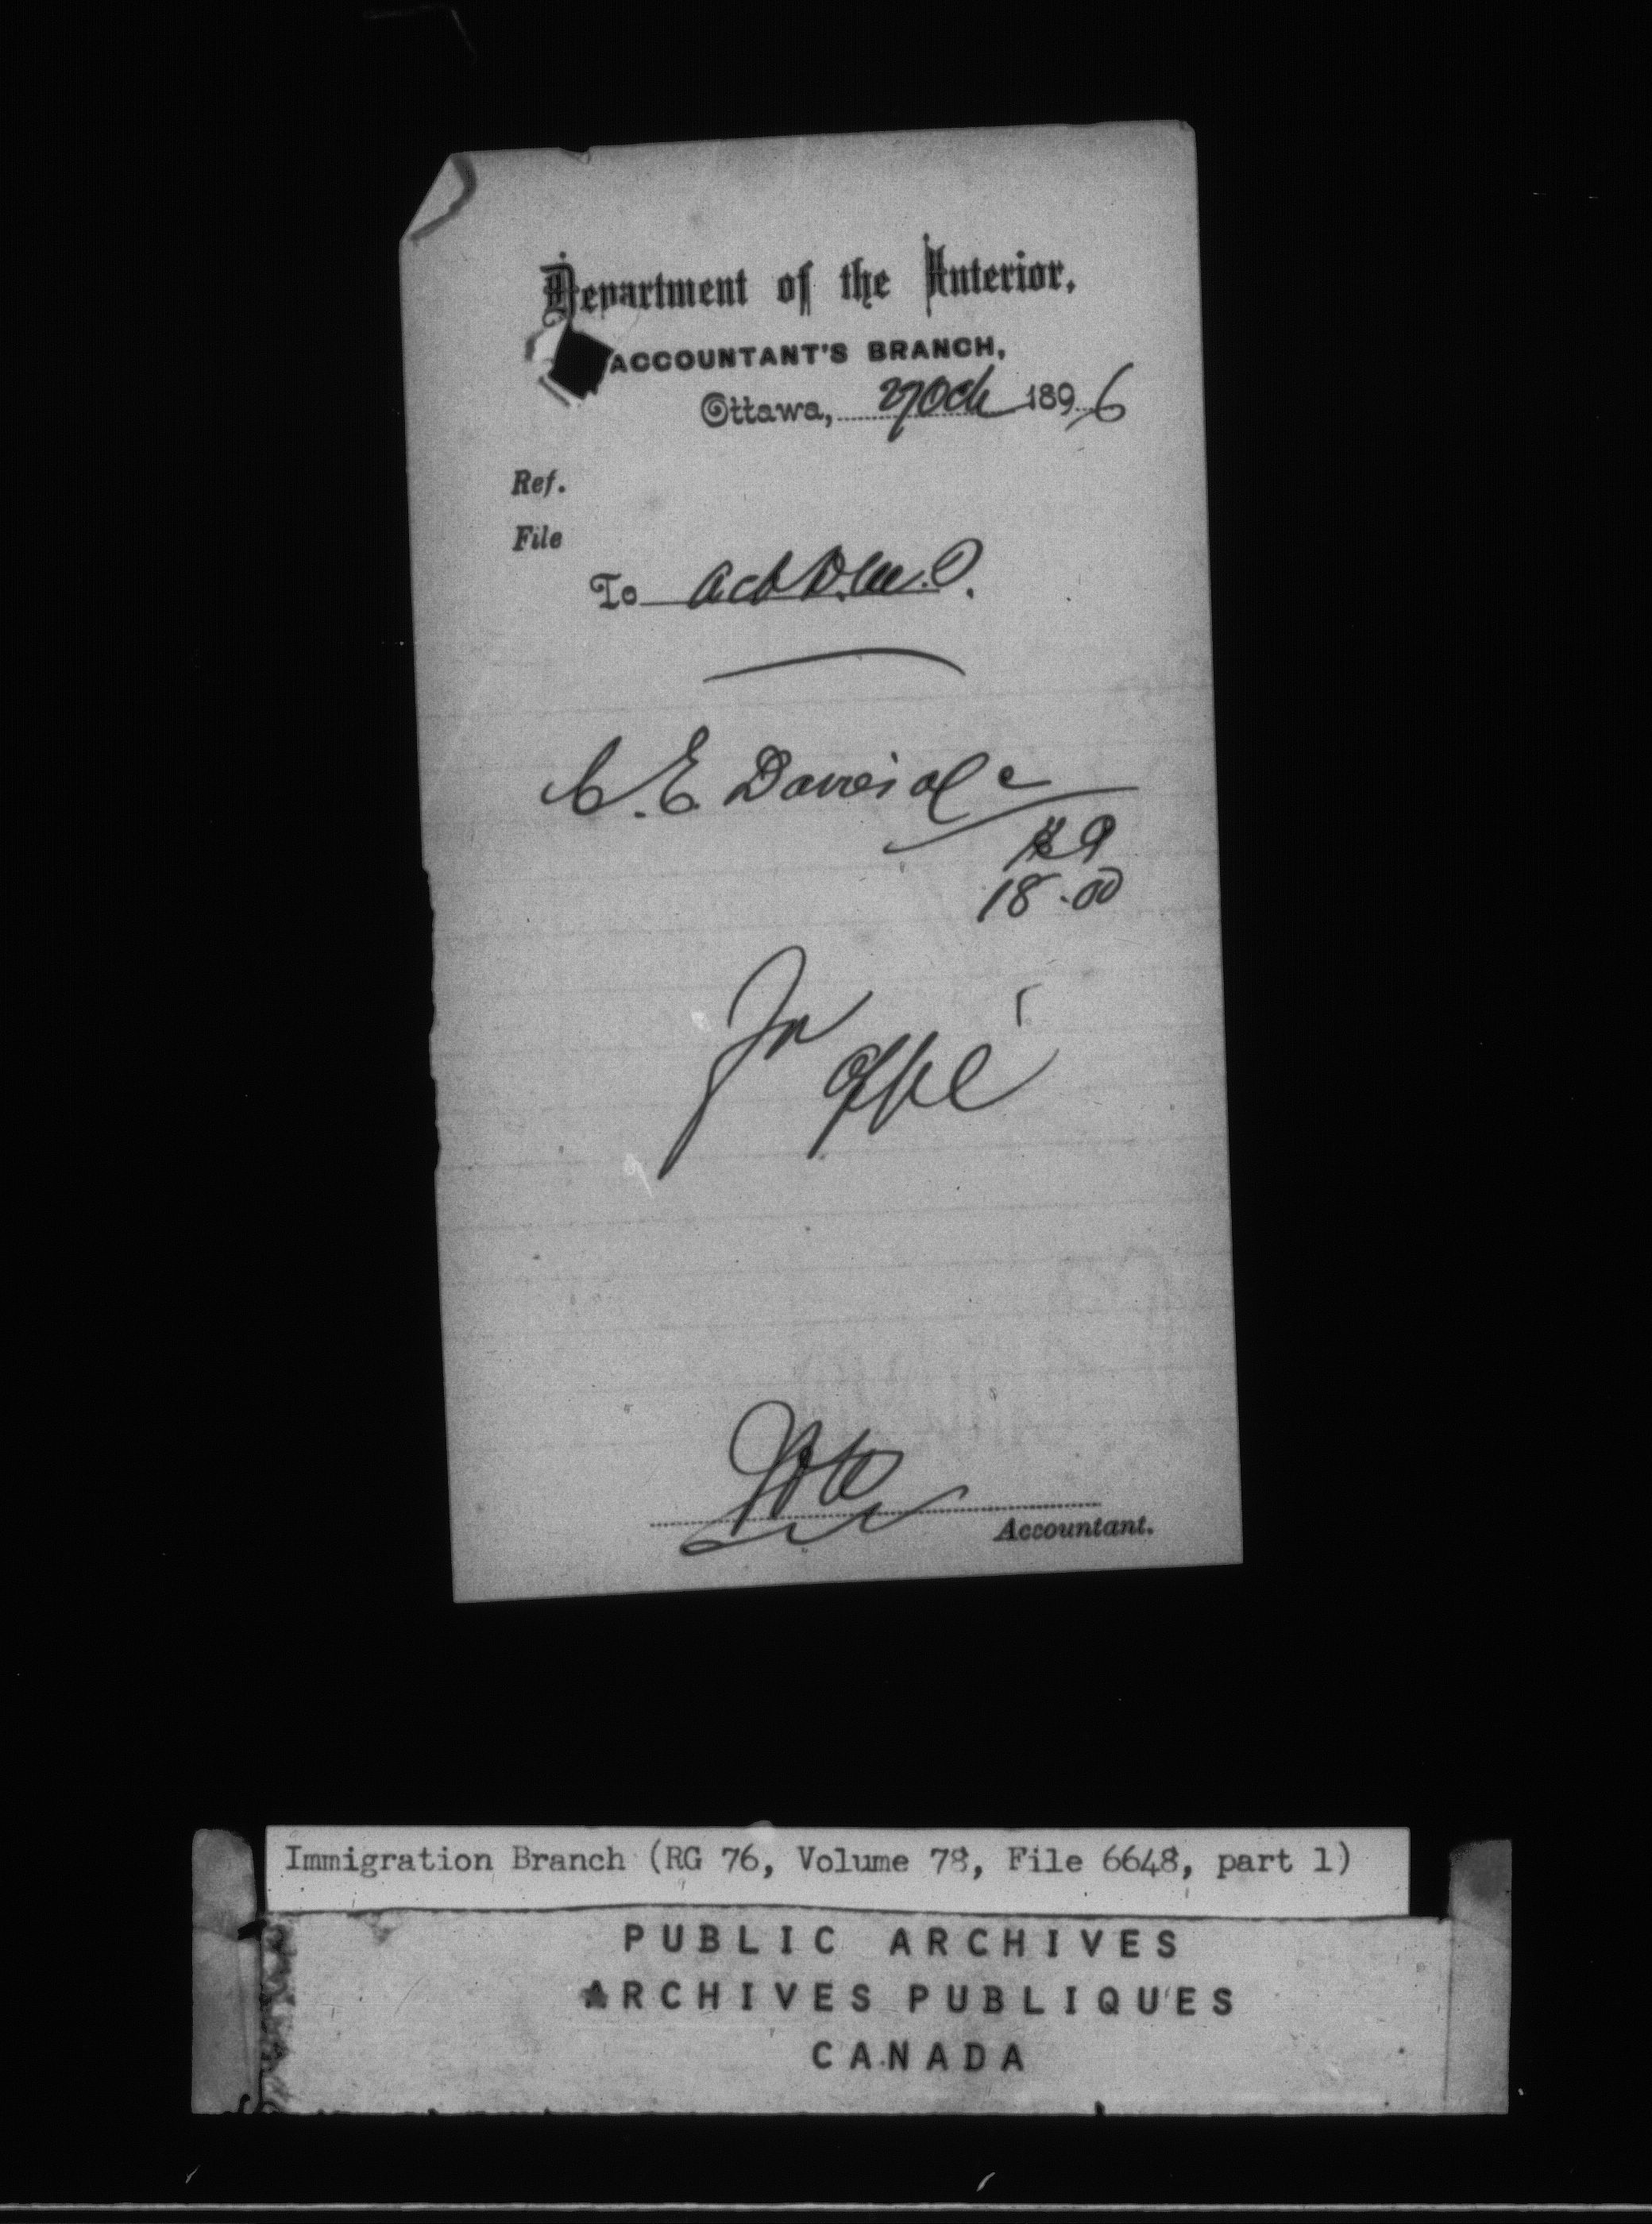 Department of the Interior,
ACCOUNTANT'S BRANCH,
Ottawa, 27 Oct 1896
Ref.
File
To Act D.M.I.
C. E. Davies a/c
$9
18.00
For app'l
Accountant.
Immigration Branch (RG 76, Volume 78, File 6648, part 1)
PUBLIC ARCHIVES
ARCHIVES PUBLIQUES
CANADA